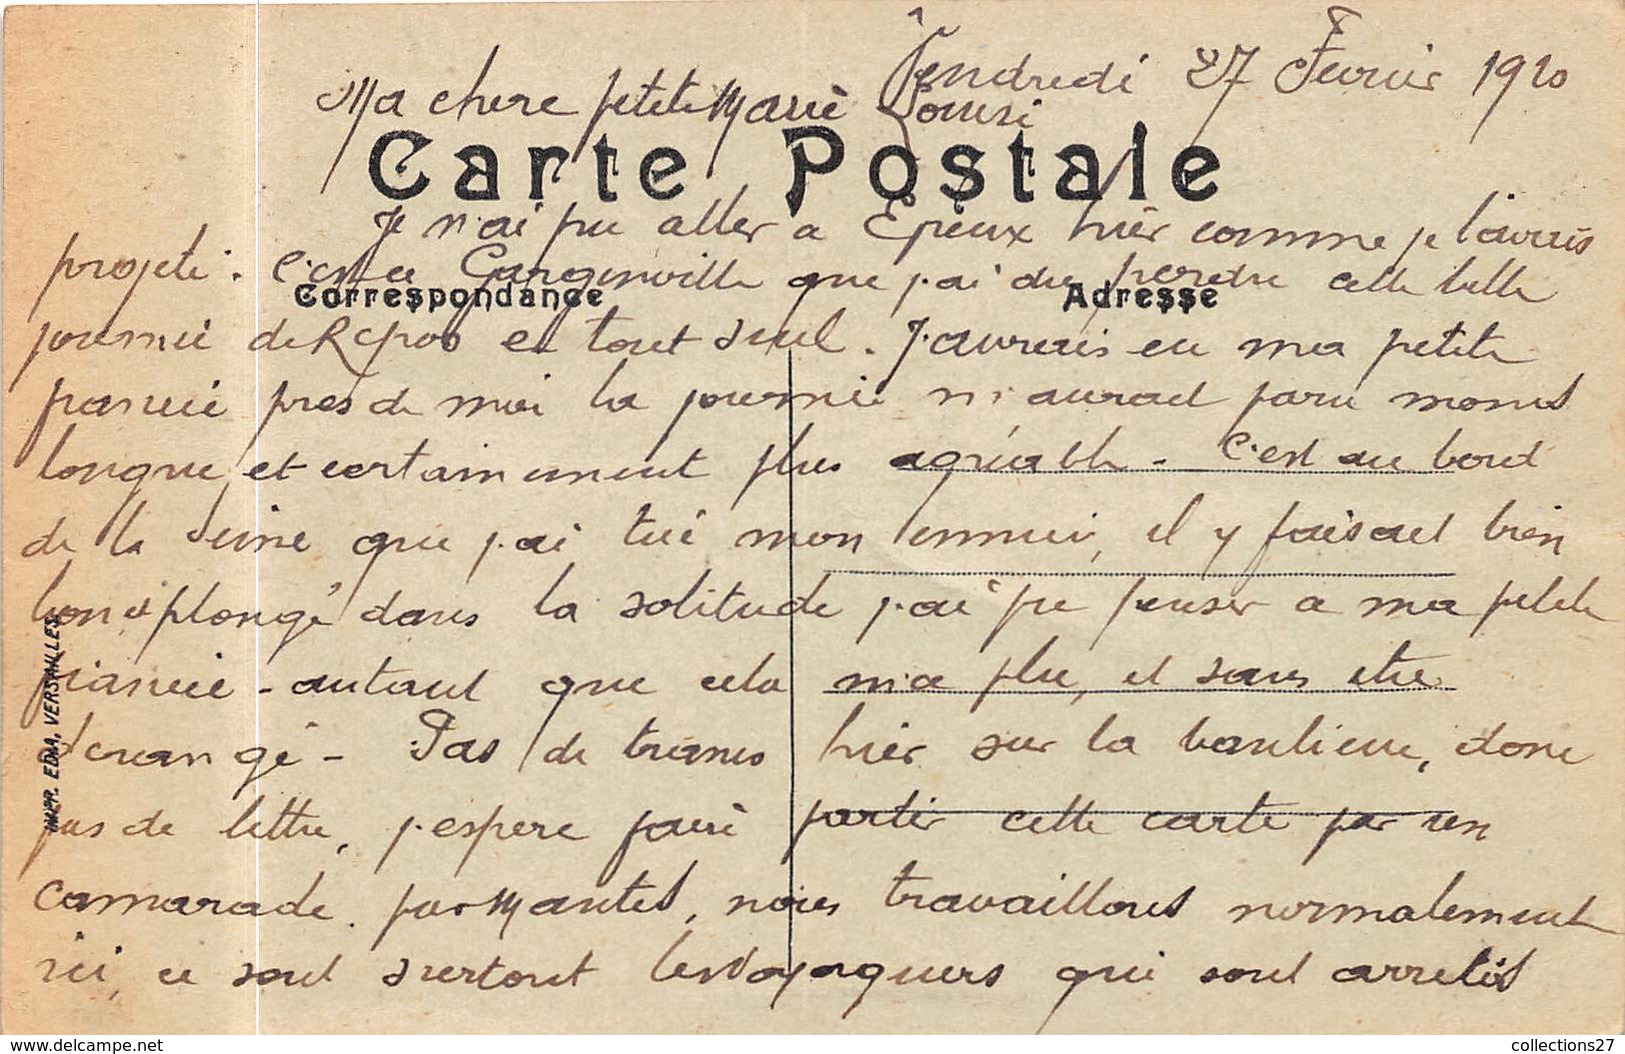 Vendredi 27 Fevrier 1920
Ma chere petite Marie Louise
Carte Postale
Je n'ai pu aller a Epieux hier comme je l'aurais
projeté. C'est a Gargenville que j'ai du perdre cette belle
Correspondance Adresse
journée de Repos et tout seul. J'aurais eu ma petite
fiancée près de moi la journée m'aurait paru moins
longue et certainement plus agréable - C'est au bord
de la Seine que j'ai tué mon ennui, il y faisait bien
bon et plongé dans la solitude j'ai pu penser a ma petite
fiancée - autant que cela m'a plu, et sans etre
derangé - Pas de trains hier sur la banlieue, donc
pas de lettre, j'espere faire partir cette carte par un
camarade par Mantes, nous travaillons normalement
ici, ce sont surtout les voyageurs qui sont arretés
IMPR. EDIA, VERSAILLES
www.delcampe.net
collections27